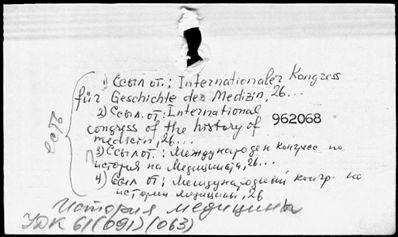 1) Ссыл от.: Internationaler Kongress
für Geschichte der Medizin, 26...
2) Ссыл. от: International
congress of the history of
medicin, 26...
962068
3) Ссыл от.: Международен конгрес по
история на медицината, 26...
4) Ссыл от: Международный конгр. по
истории медицины, 26
есть
История медицины
УДК 61(091)(063)